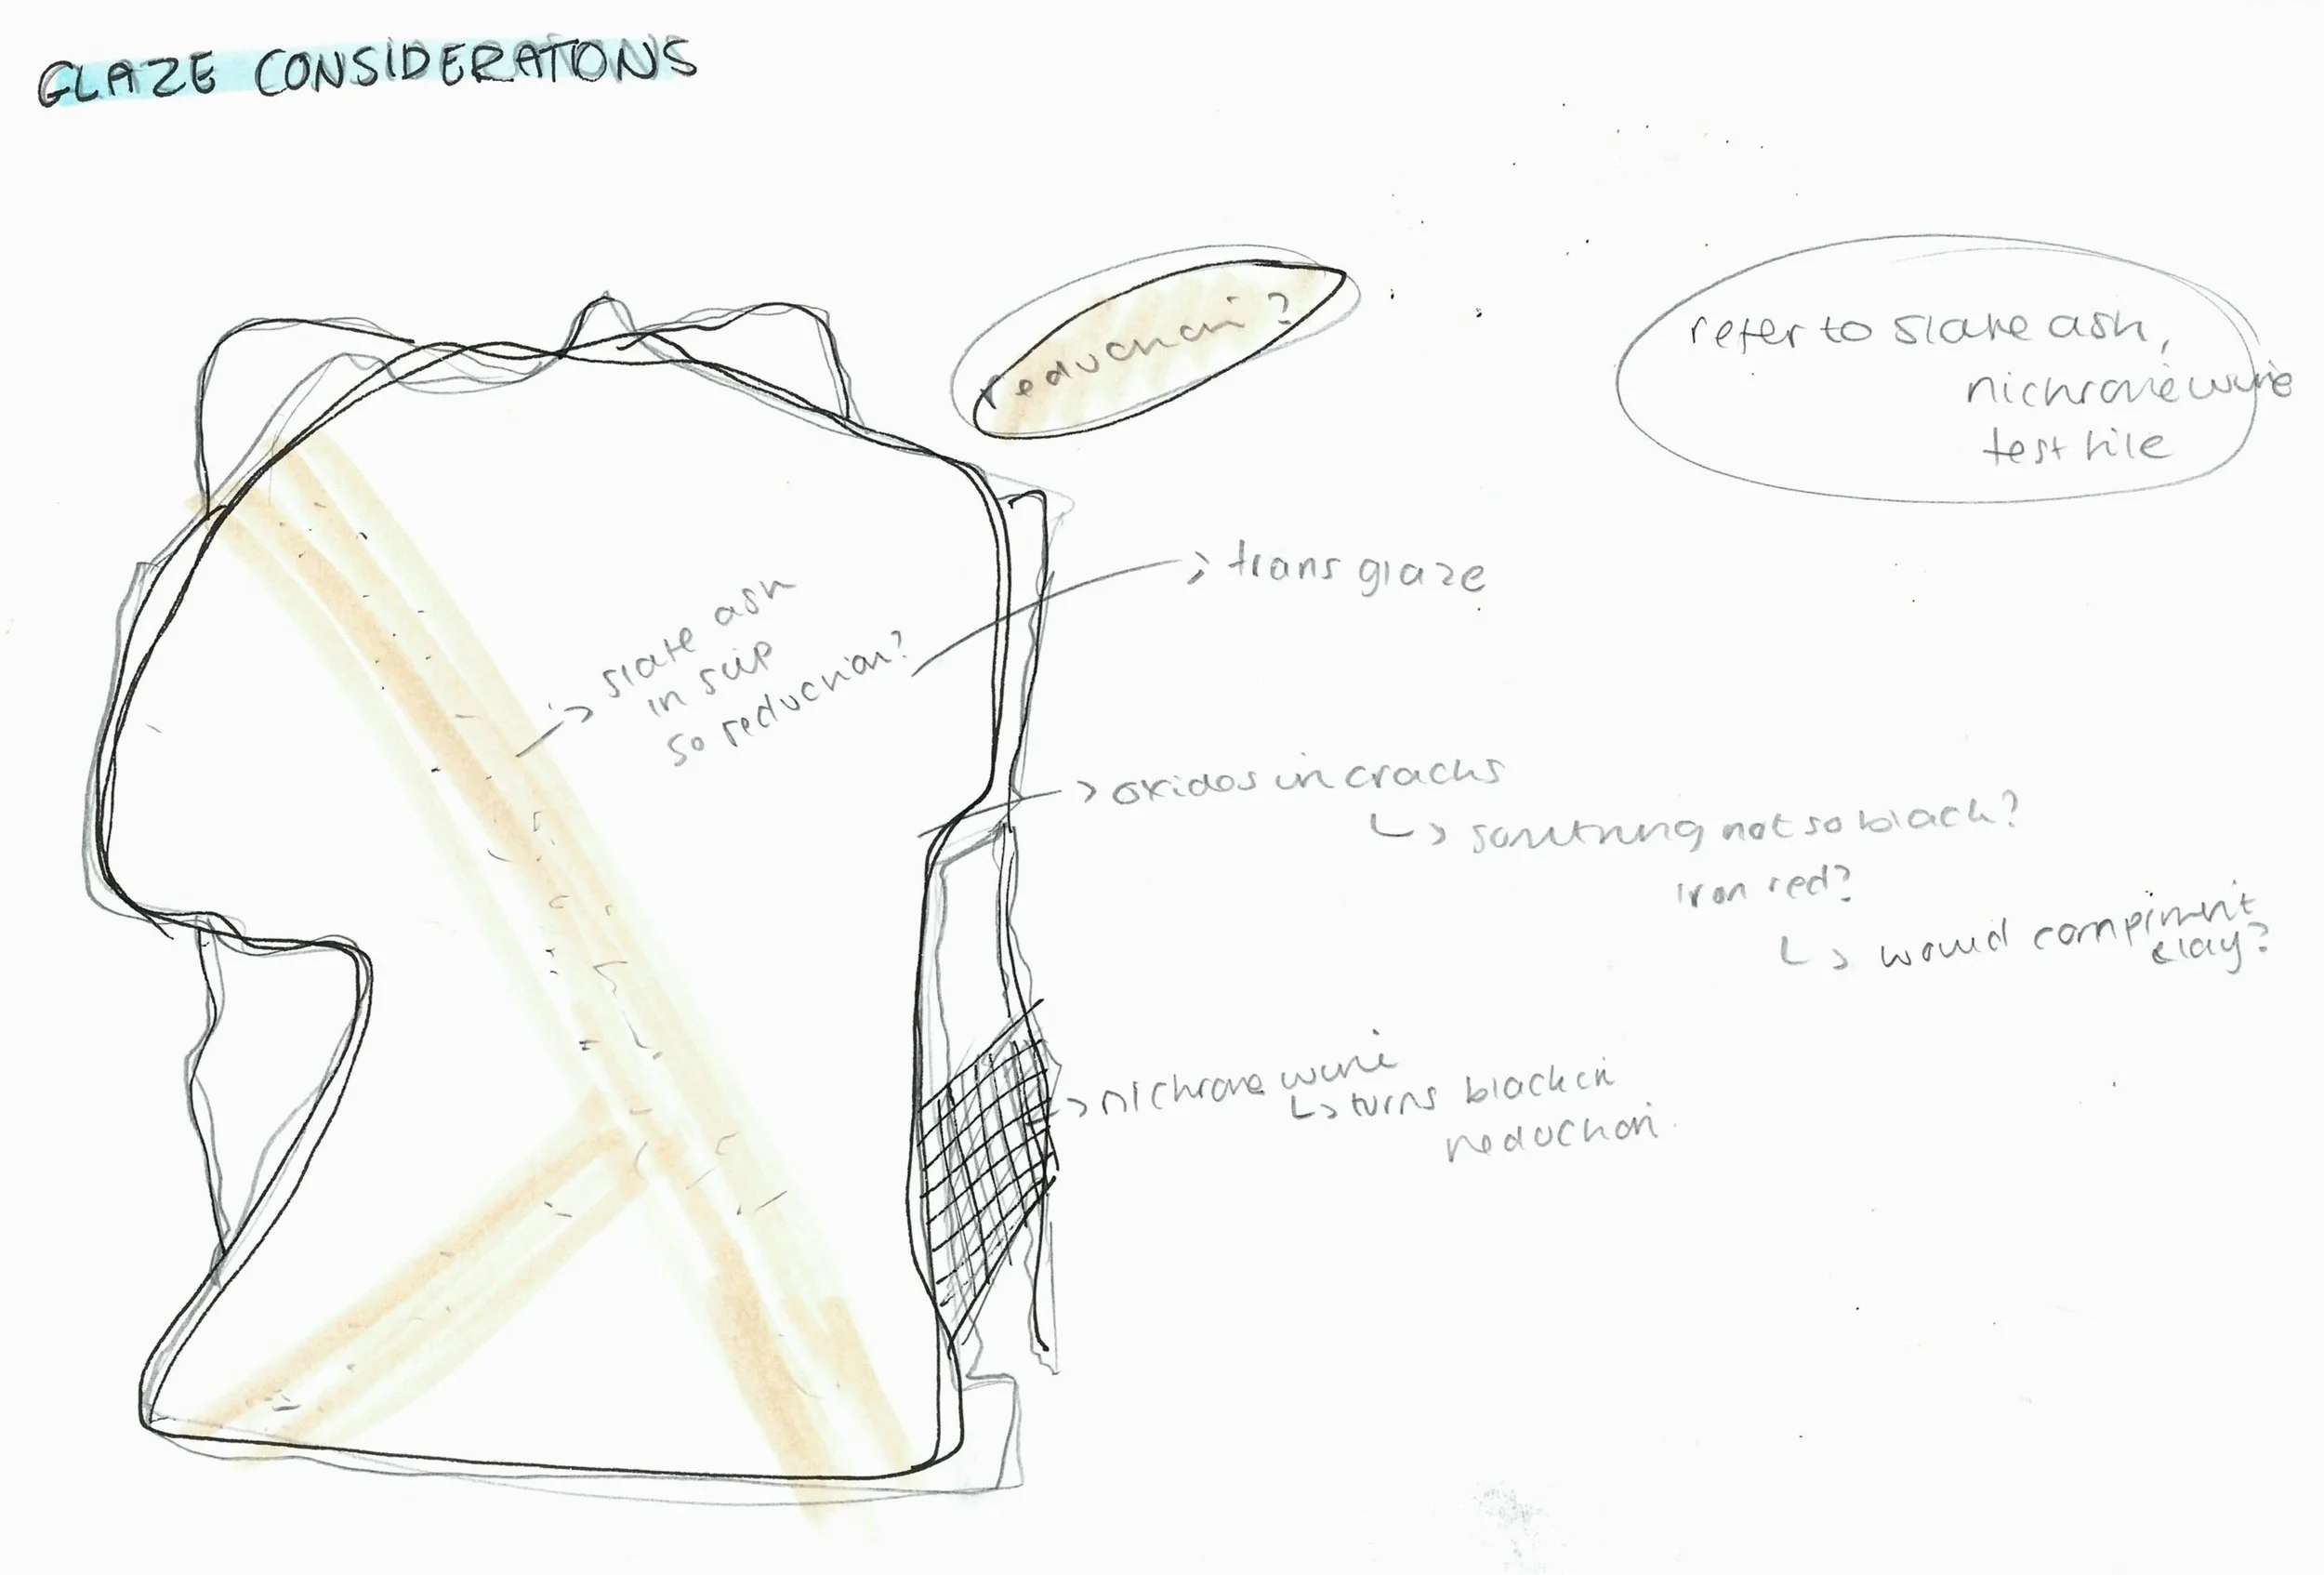 GLAZE CONSIDERATIONS
reduction?
refer to slate ash,
nichrome wire
test tile
slate ash
in slip
so reduction?
trans glaze
oxides in cracks
something not so black?
iron red?
would compliment
clay?
nichrome wire
turns black in
reduction.